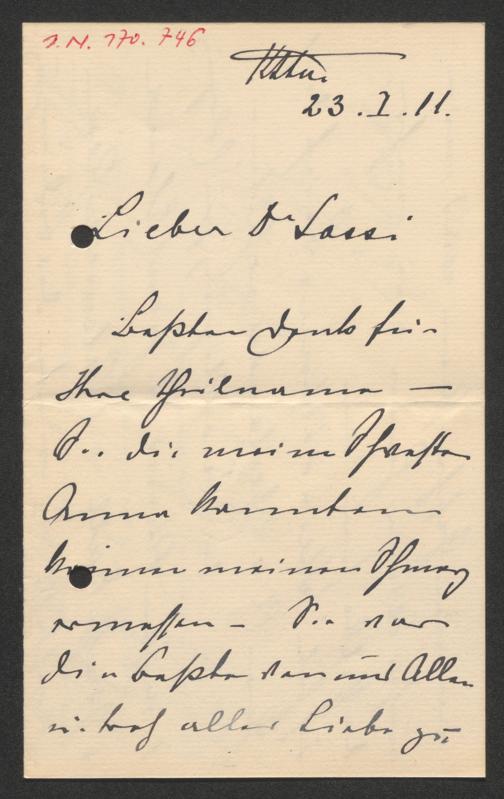 I.N. 170.746
23.I.11.
Lieber Dr Sassi
Besten Dank für
Ihre Theilname —
Sie die meine Schwester
Anna kannten
können meinen Schmerz
ermessen – Sie war
die Beste von uns Allen
u. trotz aller Liebe zu